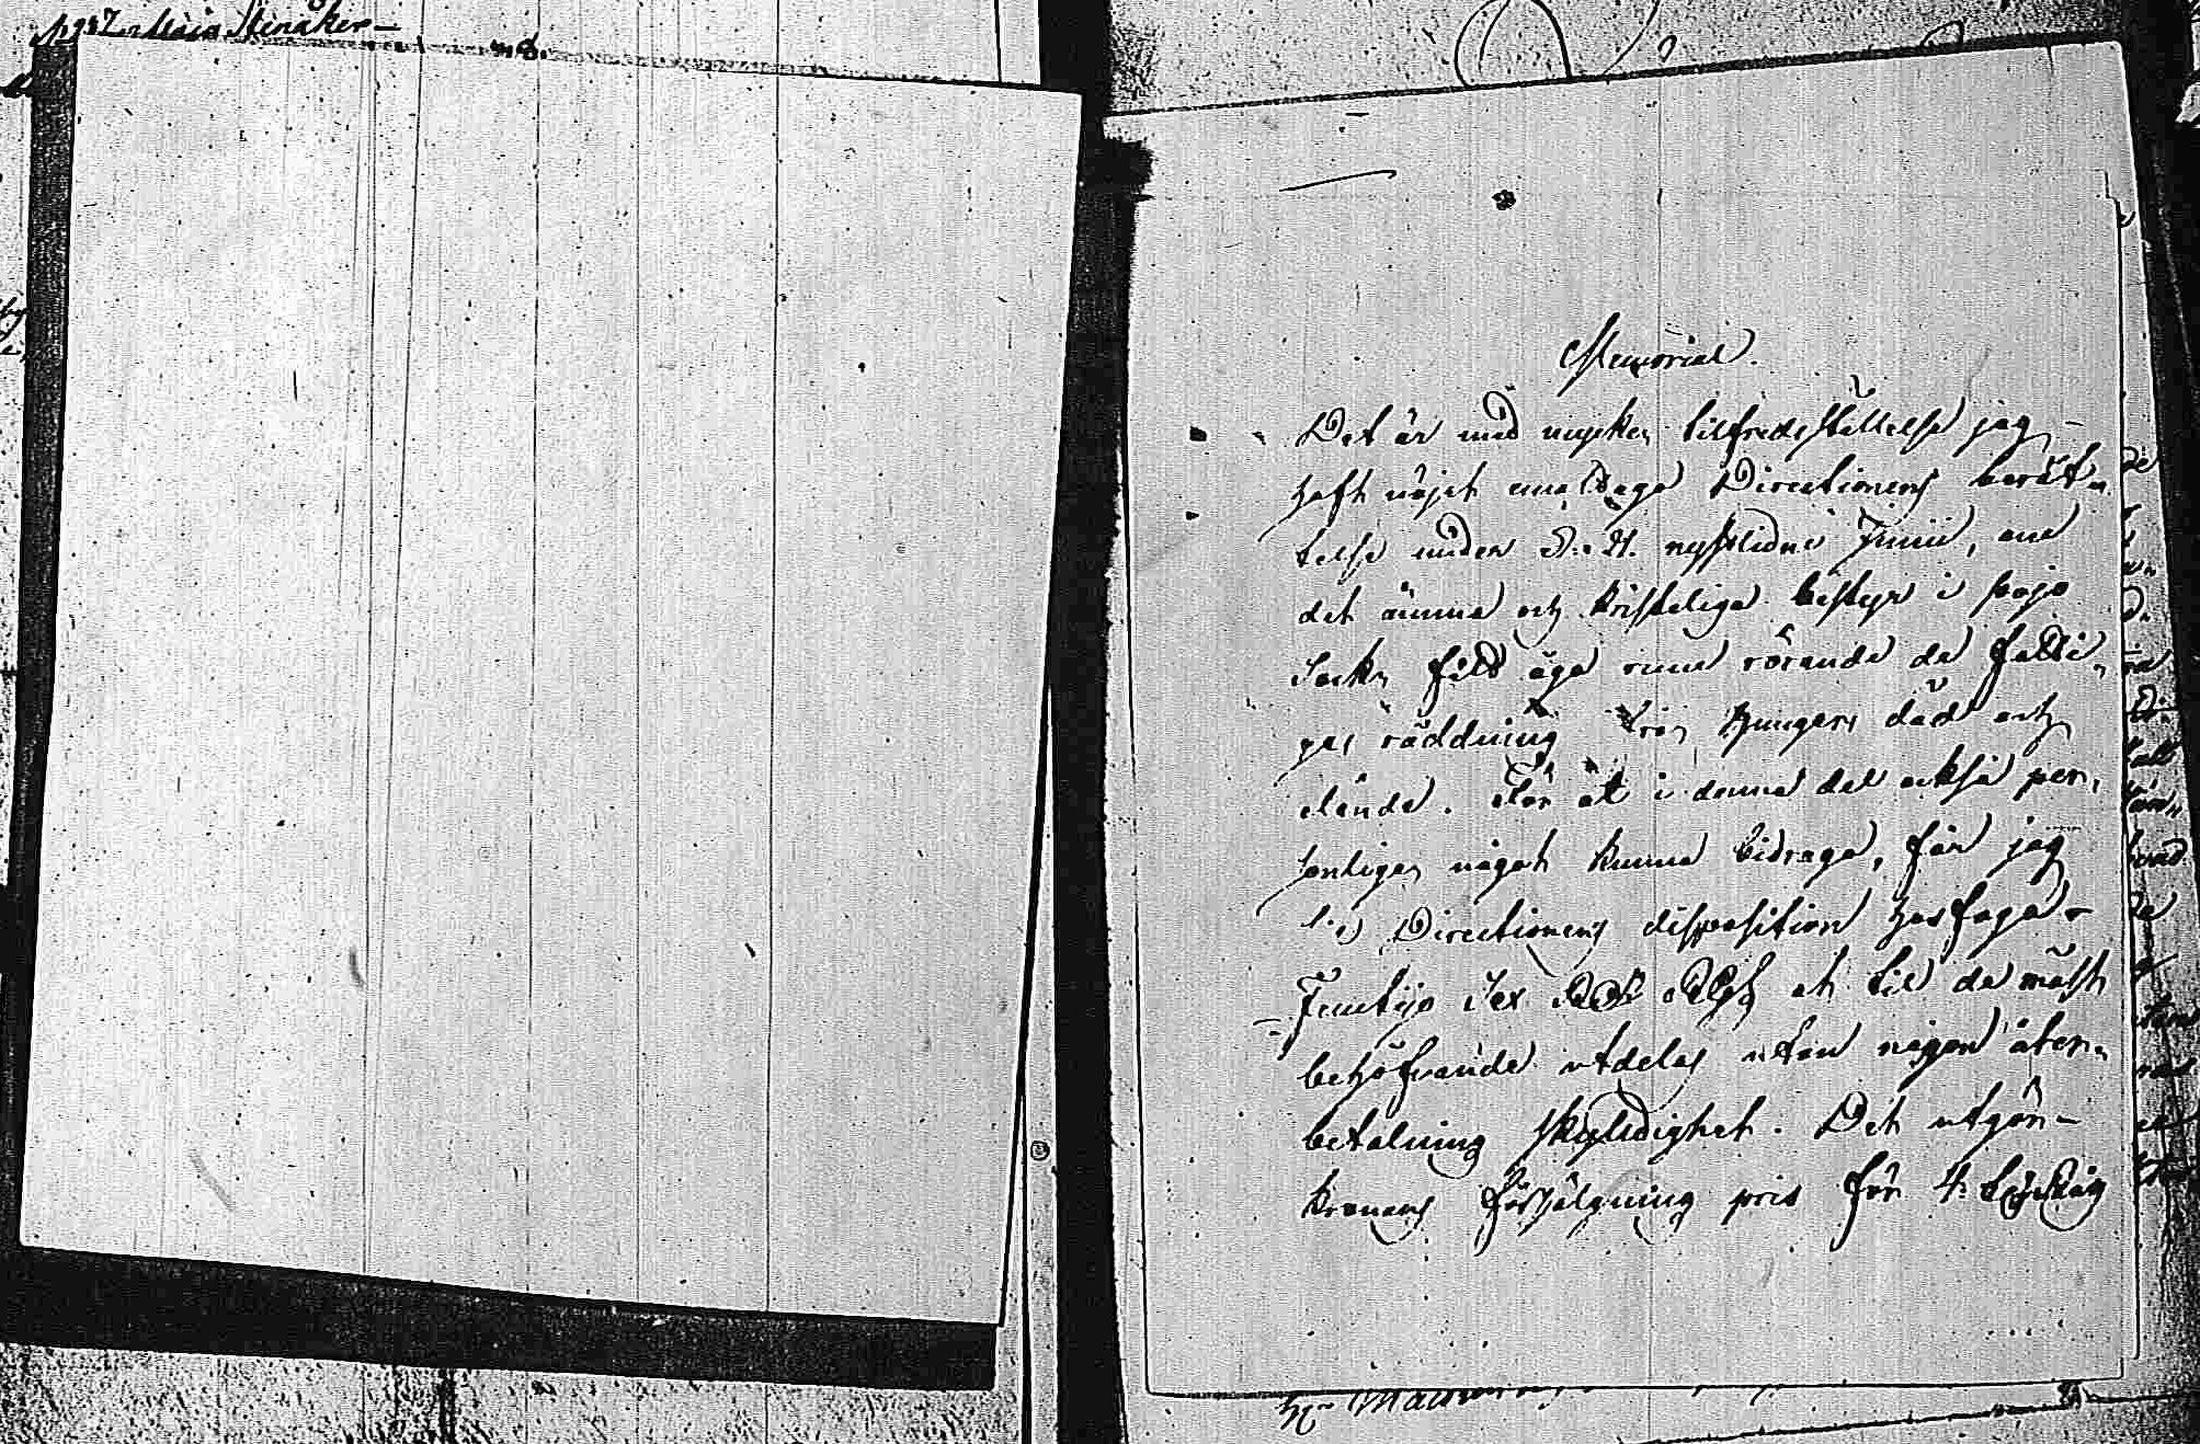 Maja Stenåker
Memorial.
Det är med mycken tilfredsställelse jag
haft nöjet emottaga Directionens berät„
telse under d: 21. nystledne Junii, om
det ömma och kristeliga bestyr i
Sockn fått äga rum rörande de fatti„
gas räddning från hungers död och
elände. För at i denna del också per„
sonligen något kunna bidraga, får jag
til Directionens disposition
Femtijo Sex RD at til de mäst
behöfvande utdelas utan någon åter„
betalning skyldighet. Det utgör
kronans försäljning pris för 4.